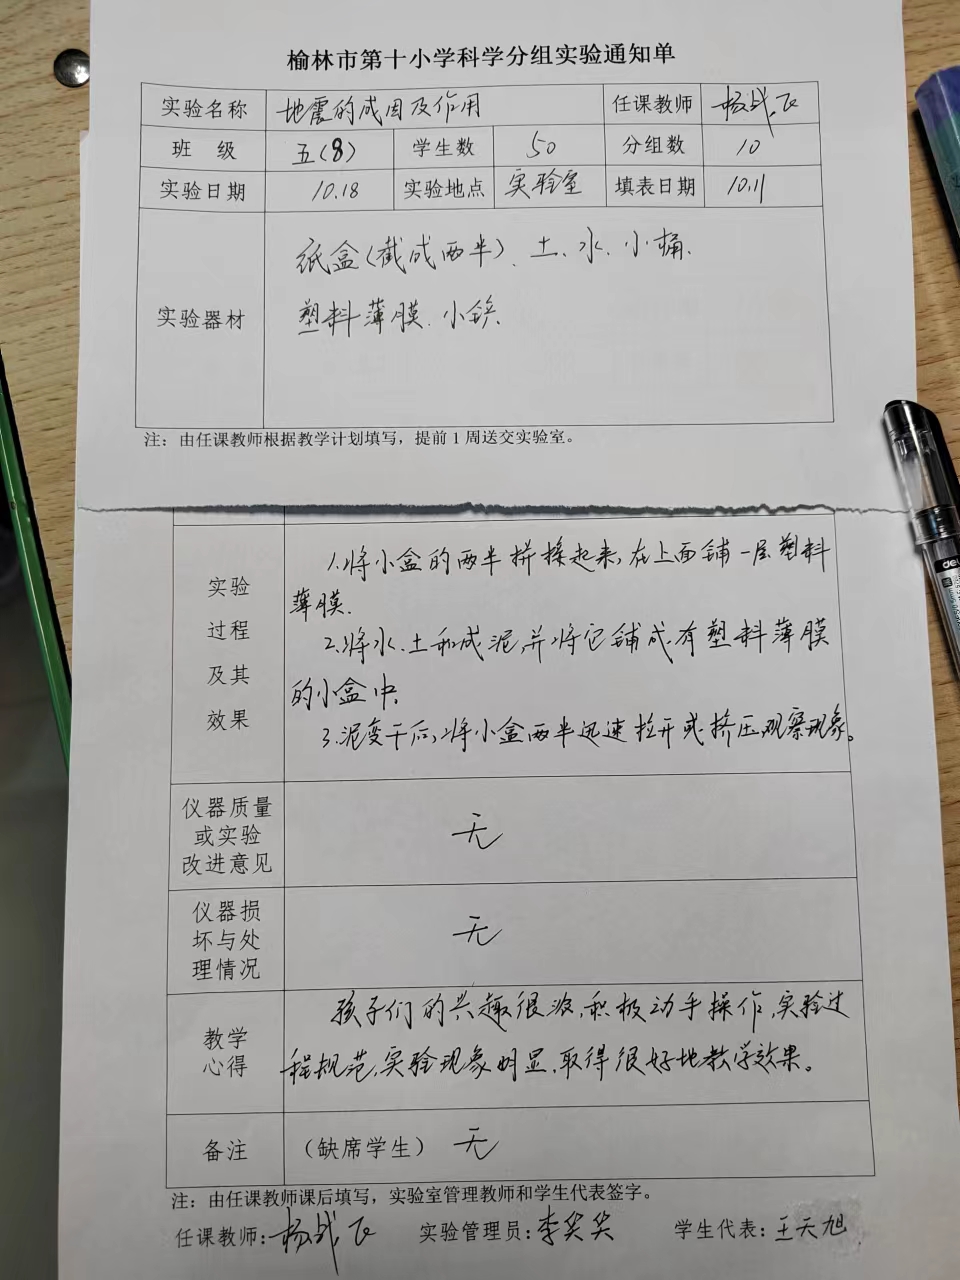 榆林市第十小学科学分组实验通知单
实验名称 地震的成因及作用 任课教师 杨战飞
班 级 五(8) 学生数 50 分组数 10
实验日期 10.18 实验地点 实验室 填表日期 10.11
纸盒(截成两半)、土、水、小桶、
实验器材 塑料薄膜、小铲
注：由任课教师根据教学计划填写，提前1周送交实验室。
实验
过程
及其
效果
1.将小盒的两半拼接起来,在上面铺一层塑料
薄膜.
2.将水、土和成泥,并将它铺成有塑料薄膜
的小盒中.
3.泥变干后,将小盒两半迅速拉开或挤压观察现象。
仪器质量
或实验
改进意见
无
仪器损
坏与处
理情况
无
教学
心得
孩子们的兴趣很浓,积极动手操作,实验过
程规范,实验现象明显,取得很好地教学效果。
备注 （缺席学生） 无
注：由任课教师课后填写，实验室管理教师和学生代表签字。
任课教师:杨战飞 实验管理员:李笑笑 学生代表:王天旭